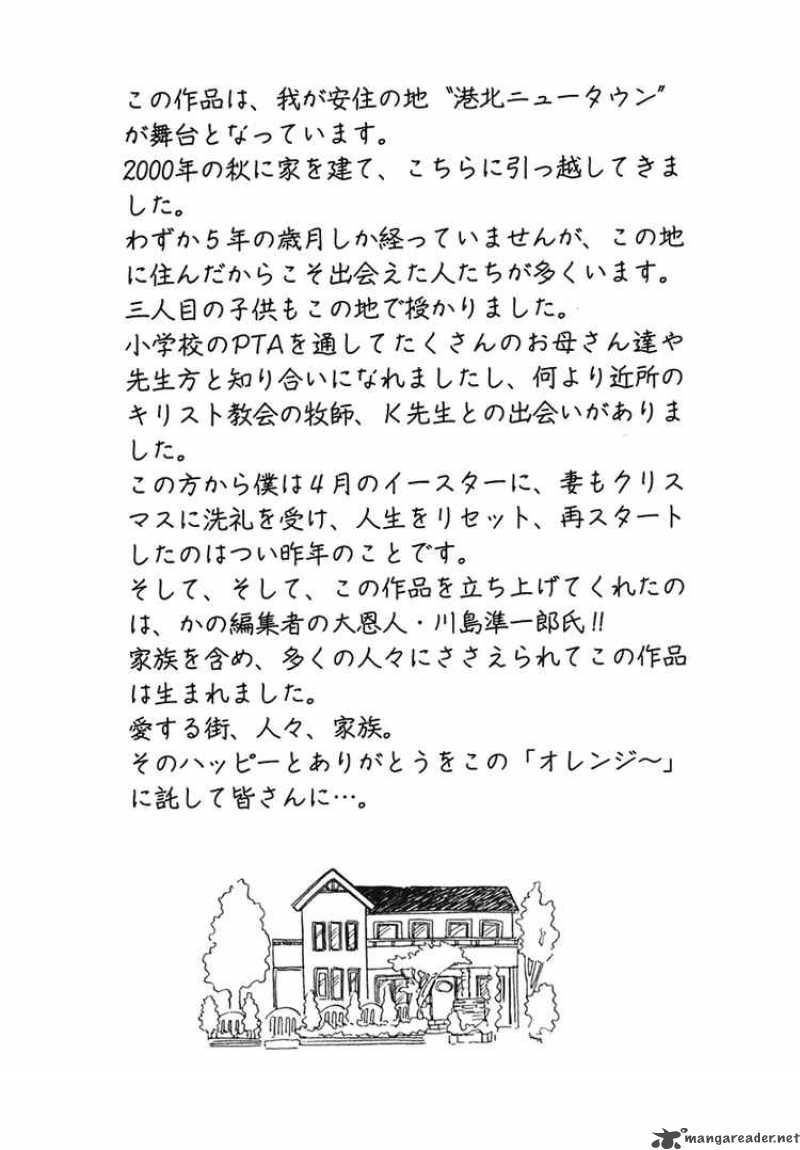 この作品は、我が安住の地〝港北ニュータウン〟
が舞台となっています。
2000年の秋に家を建て、こちらに引っ越してきま
した。
わずか5年の歳月しか経っていませんが、この地
に住んだからこそ出会えた人たちが多くいます。
三人目の子供もこの地で授かりました。
小学校のPTAを通してたくさんのお母さん達や
先生方と知り合いになれましたし、何より近所の
キリスト教会の牧師、K先生との出会いがありま
した。
この方から僕は4月のイースターに、妻もクリス
マスに洗礼を受け、人生をリセット、再スタート
したのはつい昨年のことです。
そして、そして、この作品を立ち上げてくれたの
は、かの編集者の大恩人・川島準一郎氏!!
家族を含め、多くの人々にささえられてこの作品
は生まれました。
愛する街、人々、家族。
そのハッピーとありがとうをこの「オレンジ〜」
に託して皆さんに…。
mangareader.net